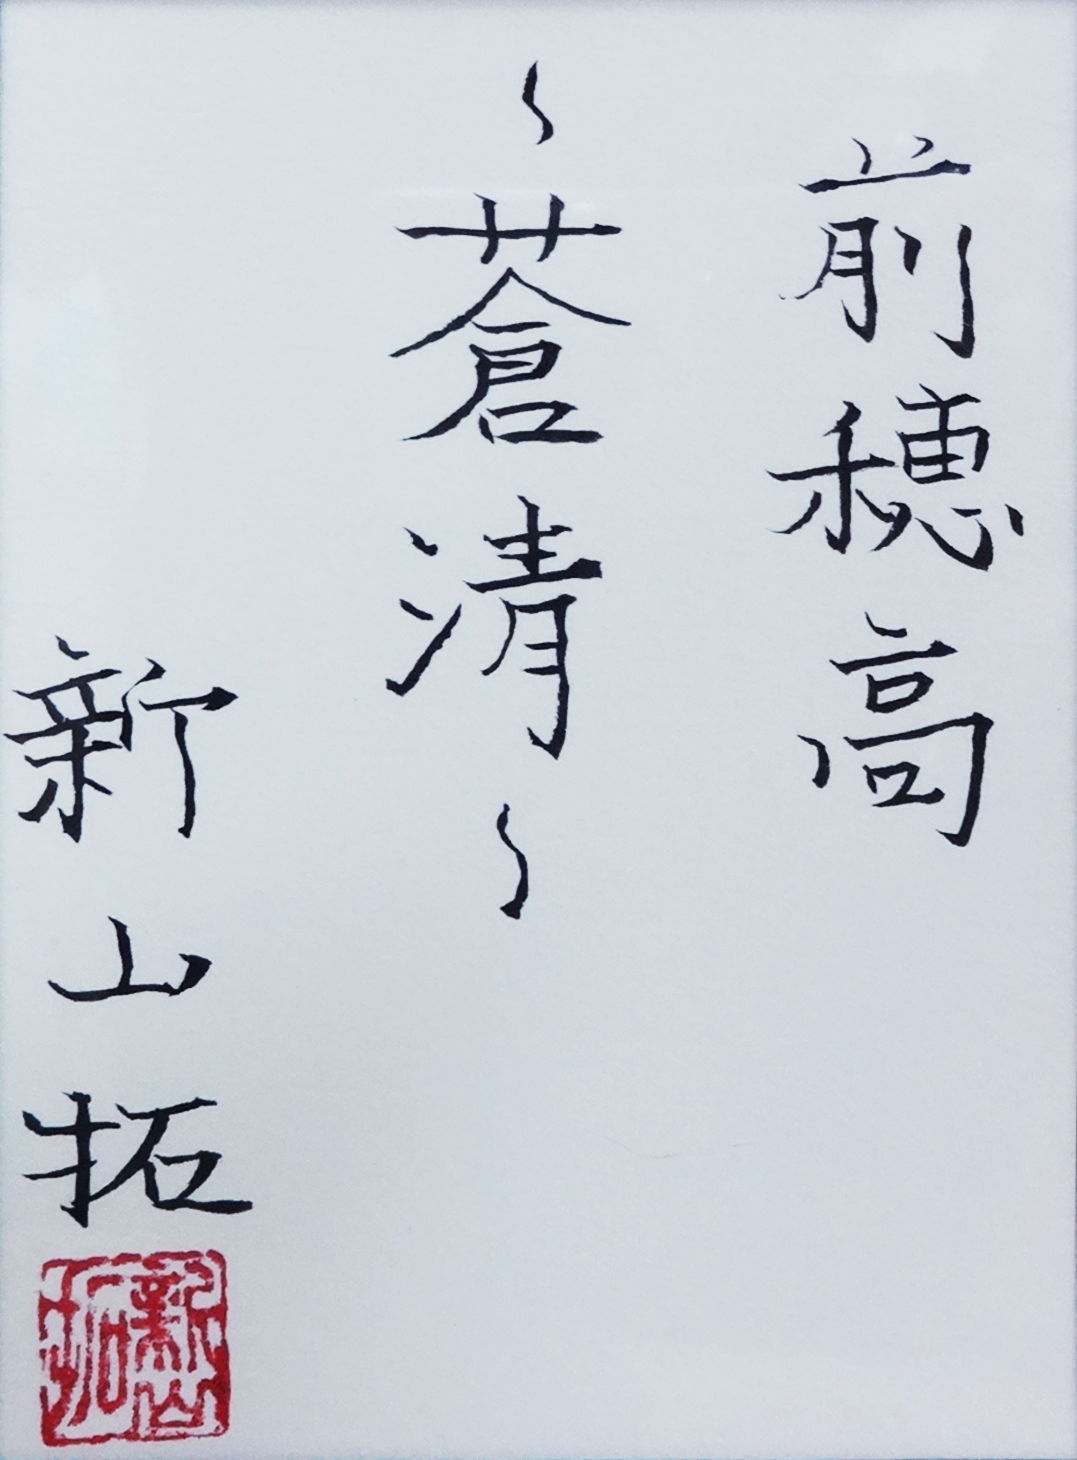 前穂高
～蒼清～
新山拓
新山拓